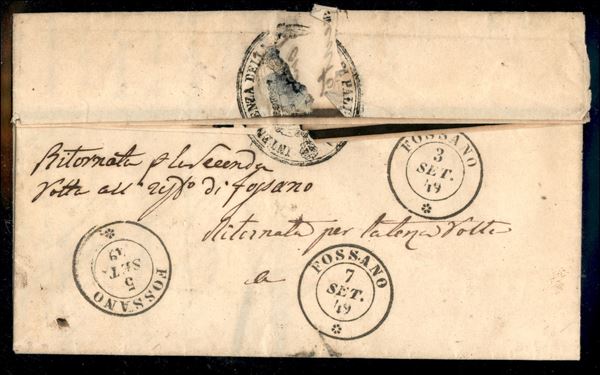 INTENDENZA DELLA
FOSSANO
3
SET.
49
Ritornata p la Seconda
Volta all' uffº di Fossano
Ritornata per la terza Volta
a
FOSSANO
5
SET.
49
FOSSANO
7
SET.
49